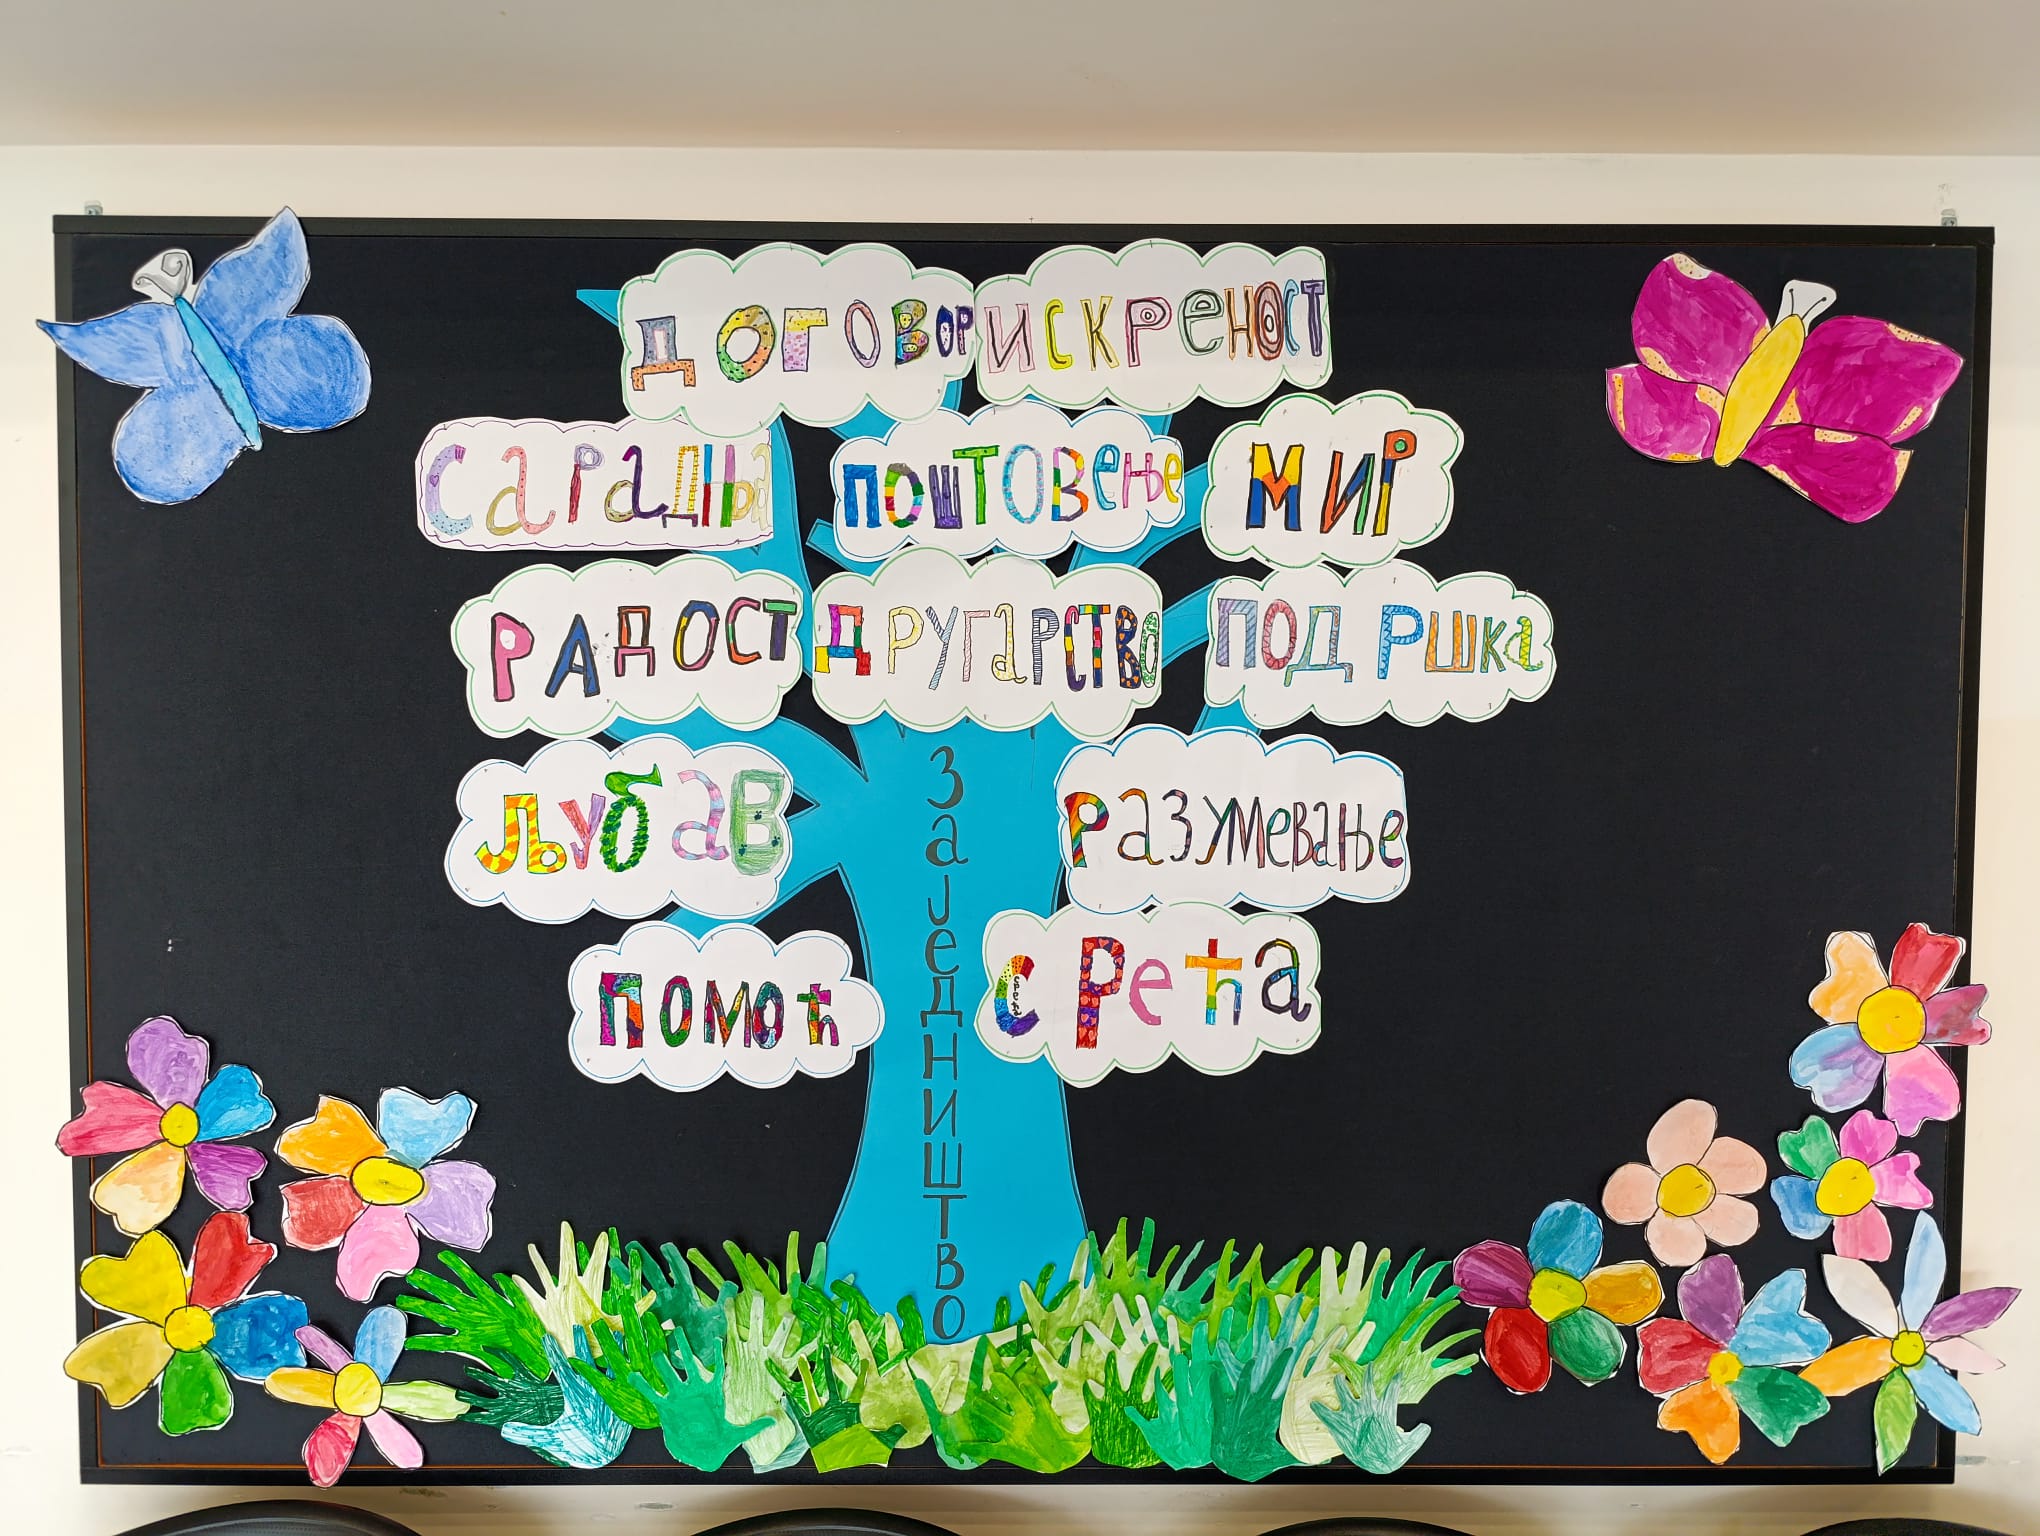 ДОГОВОР ИСКРЕНОСТ
САРАДЊА ПОШТОВЕЊЕ МИР
РАДОСТ ДРУГАРСТВО ПОДРШКА
ЉУБАВ РАЗУМЕВАЊЕ
ПОМОЋ СРЕЋА
ЗАЈЕДНИШТВО